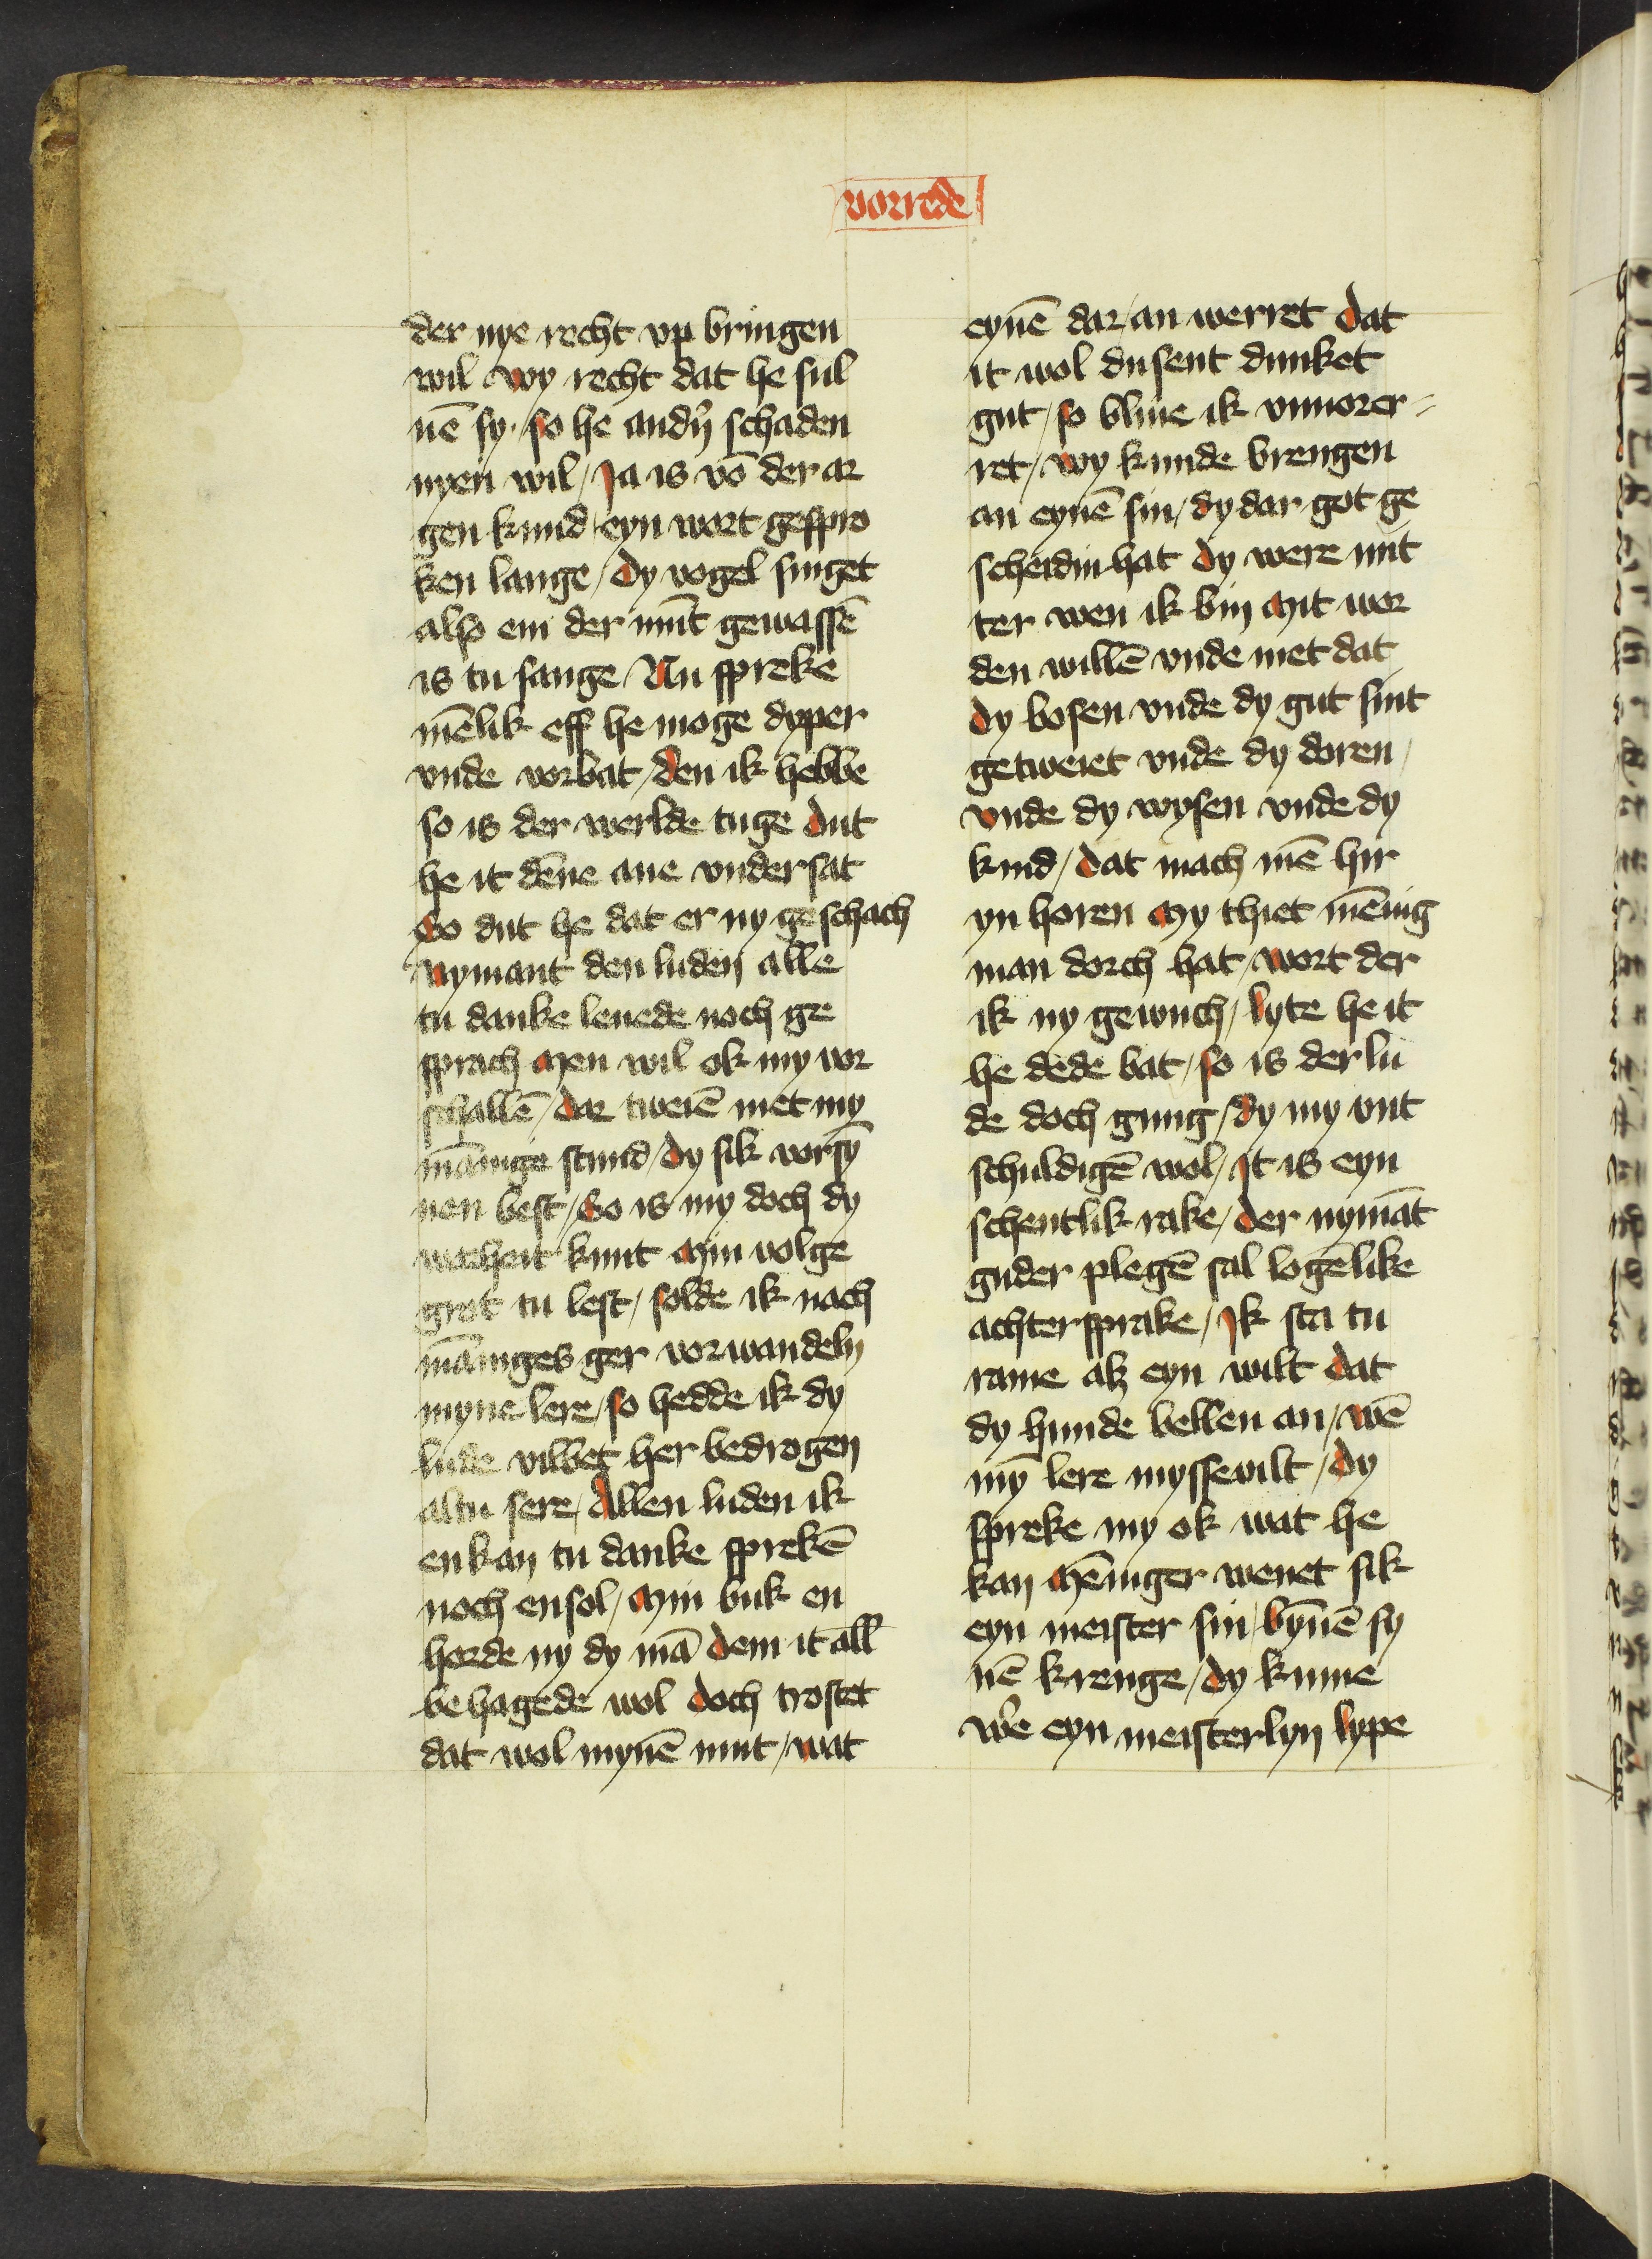 vorrede
der nye recht vp bringen
wil wy recht dat he sul
uē sy · so he andñ schaden
nyen wil / Ja is vō der ar
gen kund / eyn wort gespro
ken lange / dy vogel singet
also em der mūt gewassē
is tu sange / Nu spreke
mēlik eff he moge dyper
vnde vorbat / den ik hebbe
so is der werlde tuge dut
he it dēne ane vndersat
So dut he dat er ny geschach
nymant den luden alle
tu danke leuede noch ge
sprach Men wil ok my vor
schallē / dar tweiē met my
māninge stund / dy sik vorsȳ
nen best / So is my doch dy
warheit kunt Min volge
grot tu lest / solde ik nach
māninges ger vorwandeln
myne lere / so hedde ik dy
lude vilbet her bedrogen
altu sere / Allen luden ik
en kan tu danke sprekē
noch en sol / Min buk en
horde ny dy mā dem it all
behagede wol doch trostet
dat wol mynē mut / wat
eynē dar / an werret dat
it wol dusent dunket
gut / so bliue ik vnuorer=
ret / wy kunde brengen
an eynē sin / dy dar got ge
scheidin hat dy were nut
ter wen ik bin Mit wor
den willē vnde met dat
dy bosen vnde dy gut sint
getweiet vnde dy doren /
vnde dy wysen vnde dy
kind / dat mach mē hir
yn horen My thiet mēnig
man dorch hat / wort der
ik ny gewuch / lyte he it
he dede bat / so is der lu
de doch gnug / dy my vnt
schuldigē wol / It is eyn
schentlik rake / der nymāt
guder plegē sal logēlike
achtersprake / Ik sta tu
rame alz eyn wilt dat
dy hunde bellen an / wē
mȳ lere myssevilt / dy
spreke my ok wat he
kan Mēniger wenet sik
eyn meister sin / bȳnē sy
nē krenge / dy kume
wẽ eyn meisterlyn lype